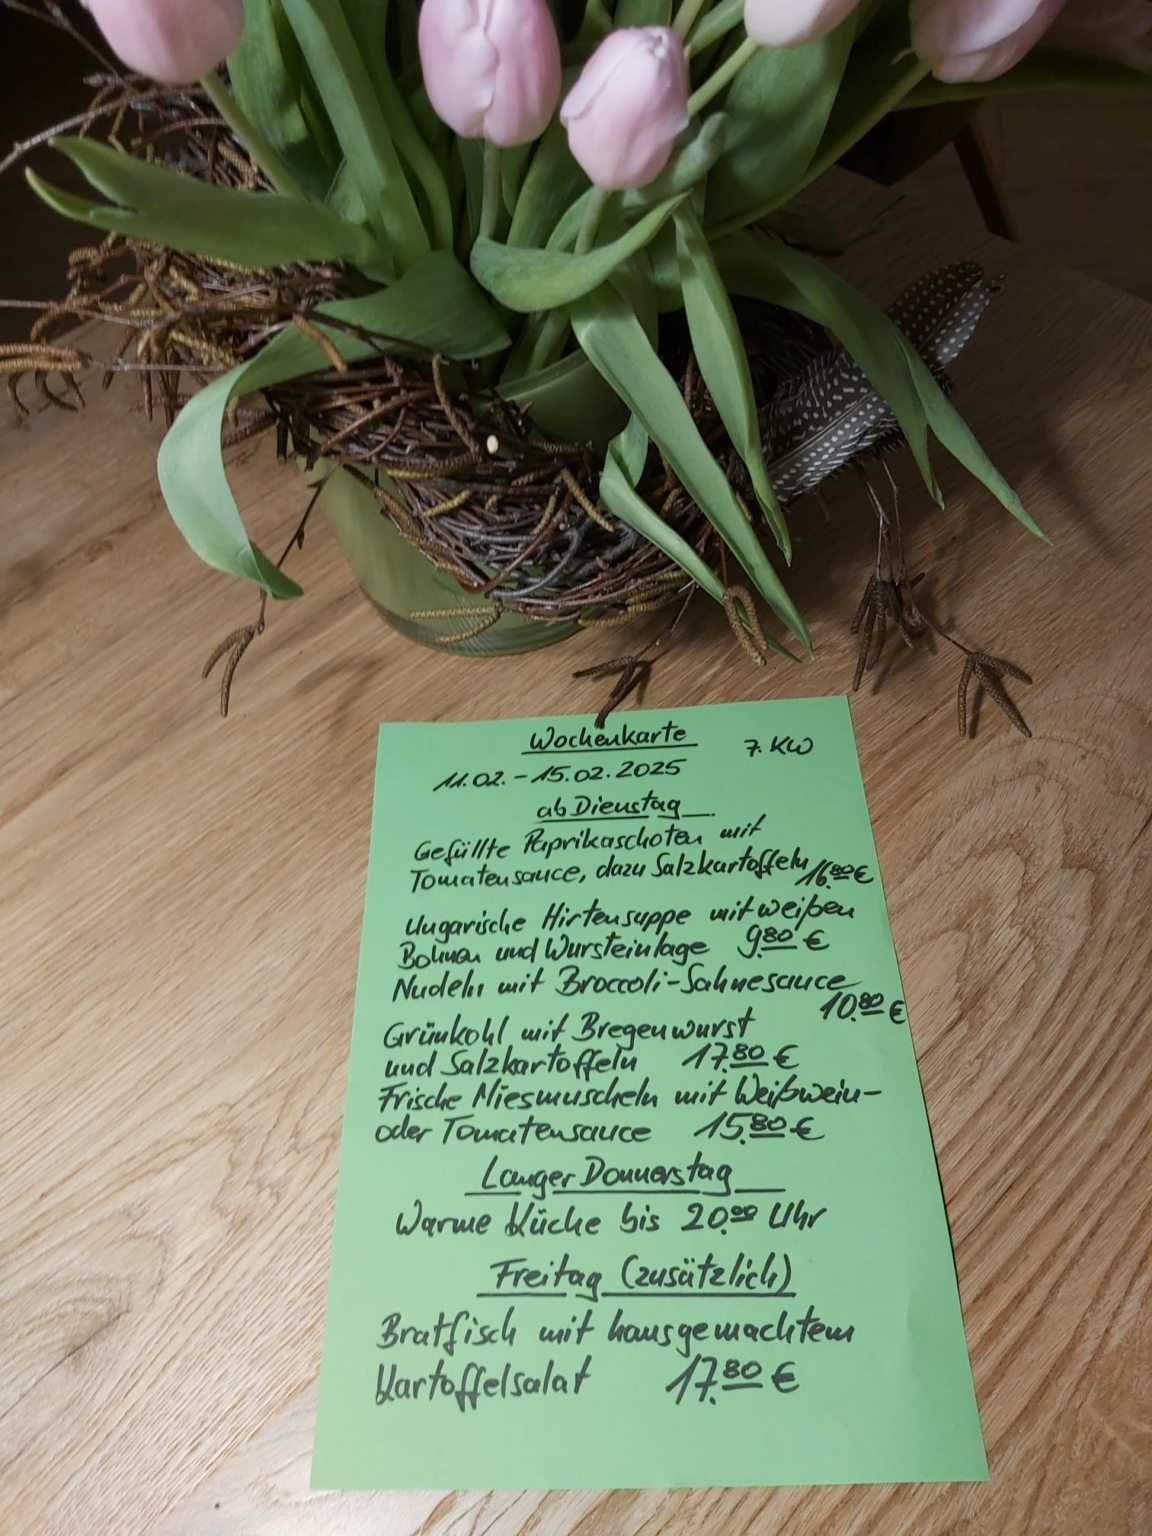 Wochenkarte 7. KW
11.02. - 15.02.2025
ab Dienstag
Gefüllte Paprikaschoten mit
Tomatensauce, dazu Salzkartoffeln 16.80 €
Ungarische Hirtensuppe mit weißen
Bohnen und Wursteinlage 9.80 €
Nudeln mit Broccoli-Sahnesauce
10.80 €
Grünkohl mit Bregenwurst
und Salzkartoffeln 17.80 €
Frische Miesmuscheln mit Weißwein-
oder Tomatensauce 15.80 €
Langer Donnerstag
Warme Küche bis 20.00 Uhr
Freitag (zusätzlich)
Bratfisch mit hausgemachtem
Kartoffelsalat 17.80 €